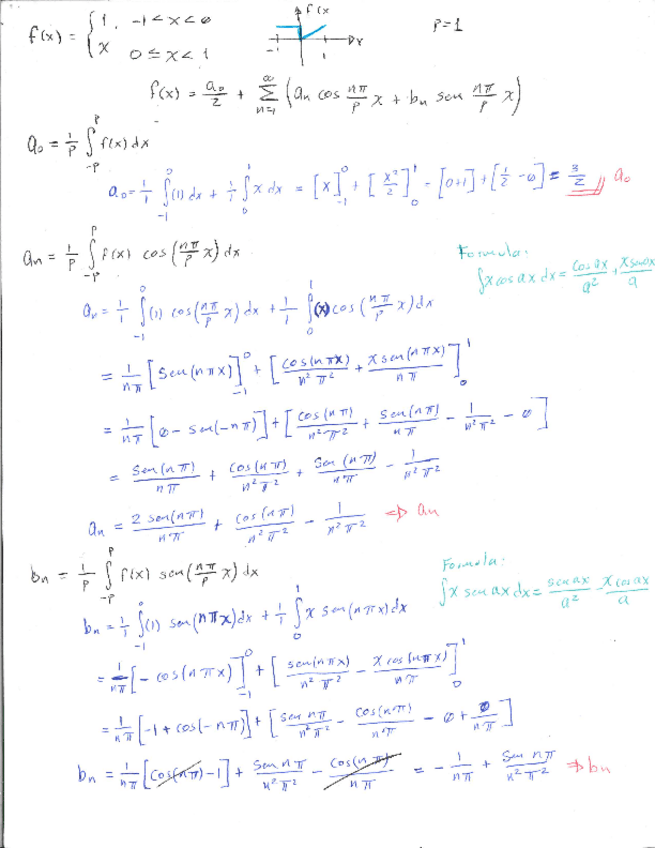 f(x) = { 1, -1<x<0 f(x P=1
x 0≤x<1 -1 1 x
f(x) = a₀/2 + Σ_{n=1}^{∞} (an cos nπ/P x + bn sen nπ/P x)
a₀ = 1/P ∫_{-P}^{P} f(x) dx
a₀ = 1/1 ∫_{-1}^{0} (1) dx + 1/1 ∫_{0}^{1} x dx = [x]_{-1}^{0} + [x²/2]_{0}^{1} = [0+1] + [1/2 - 0] = 3/2 a₀
an = 1/P ∫_{-P}^{P} f(x) cos (nπ/P x) dx
Formula:
∫x cos ax dx = cos ax/a² + x sen ax/a
an = 1/1 ∫_{-1}^{0} (1) cos (nπ/P x) dx + 1/1 ∫_{0}^{1} (x) cos (nπ/P x) dx
= 1/nπ [Sen(nπx)]_{-1}^{0} + [cos(nπx)/n²π² + x sen(nπx)/nπ]_{0}^{1}
= 1/nπ [0 - sen(-nπ)] + [cos(nπ)/n²π² + sen(nπ)/nπ - 1/n²π² - 0]
= Sen(nπ)/nπ + cos(nπ)/n²π² + Sen(nπ)/nπ - 1/n²π²
an = 2 sen(nπ)/nπ + cos(nπ)/n²π² - 1/n²π² ⇒ an
bn = 1/P ∫_{-P}^{P} f(x) sen (nπ/P x) dx
Formula:
∫x sen ax dx = sen ax/a² - x cos ax/a
bn = 1/1 ∫_{-1}^{0} (1) sen (nπx) dx + 1/1 ∫_{0}^{1} x sen (nπx) dx
= 1/nπ [-cos(nπx)]_{-1}^{0} + [sen(nπx)/n²π² - x cos(nπx)/nπ]_{0}^{1}
= 1/nπ [-1 + cos(-nπ)] + [sen nπ/n²π² - cos(nπ)/nπ - 0 + 0/nπ]
bn = 1/nπ [cos(nπ) - 1] + Sen nπ/n²π² - cos(nπ)/nπ = - 1/nπ + Sen nπ/n²π² ⇒ bn